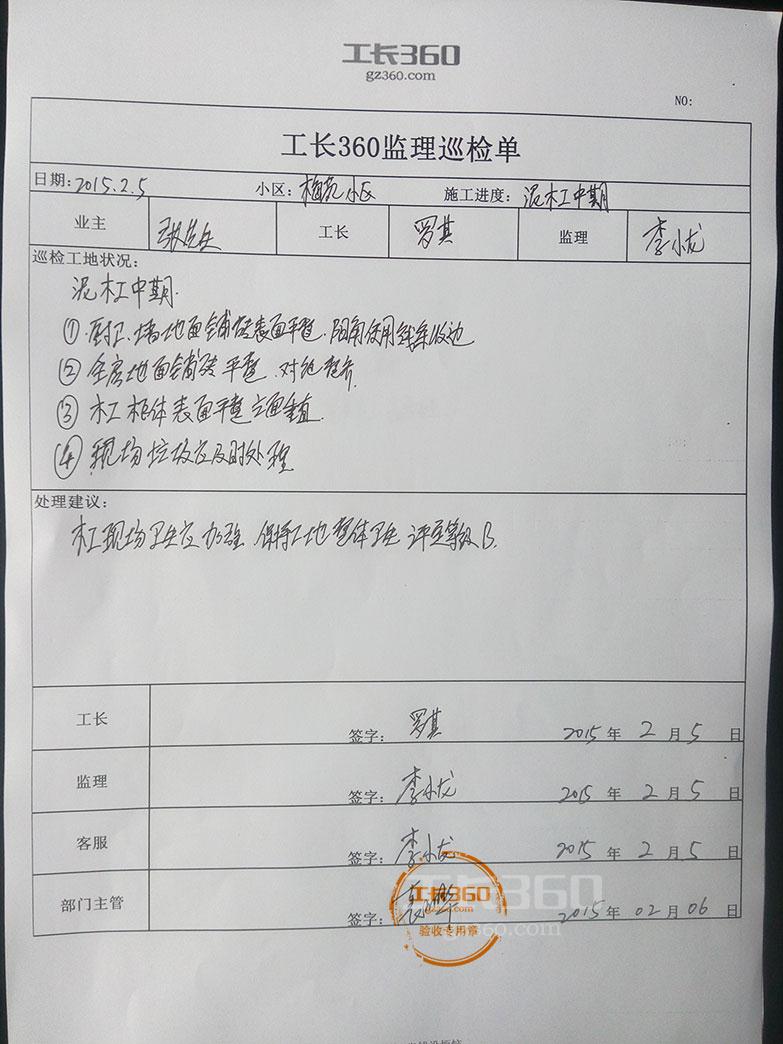 工长360
gz360.com
NO:
工长360监理巡检单
日期:2015.2.5 小区:梅苑小区 施工进度:泥木工中期
业主 工长 罗其 监理 李小龙
巡检工地状况:
泥木工中期.
①厨卫、墙地面铺砖表面平整.阳角使用线条收边
②全房地面铺砖平整.对缝整齐.
③木工柜体表面平整立面垂直.
④现场垃圾应及时处理
处理建议:
木工现场卫生应加强.保持工地整体卫生.评定等级B.
工长 签字:罗其 2015年2月5日
监理 签字:李小龙 2015年2月5日
客服 签字:李小龙 2015年2月5日
部门主管 签字: 2015年02月06日
工长360
gz360.com
验收专用章
工长360
gz360.com